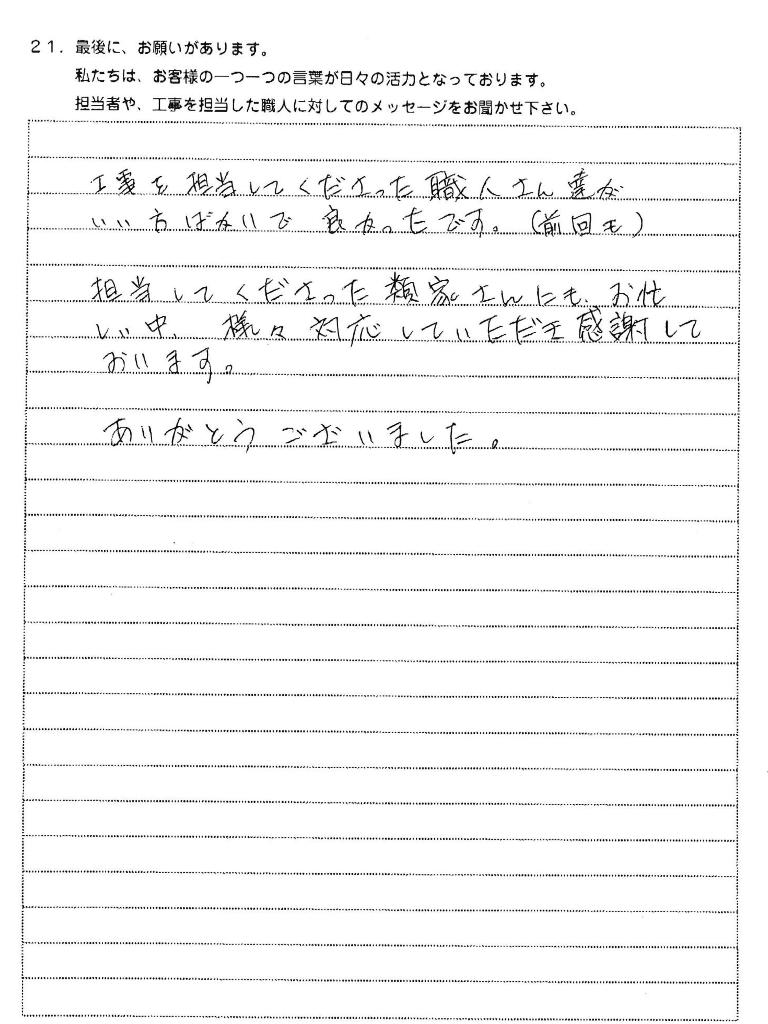 21. 最後に、お願いがあります。
私たちは、お客様の一つ一つの言葉が日々の活力となっております。
担当者や、工事を担当した職人に対してのメッセージをお聞かせ下さい。
工事を担当してくださった職人さん達が
いい方ばかりで良かったです。(前回も)
担当してくださった類家さんにも、お忙
しい中、様々対応していただき感謝して
おります。
ありがとうございました。